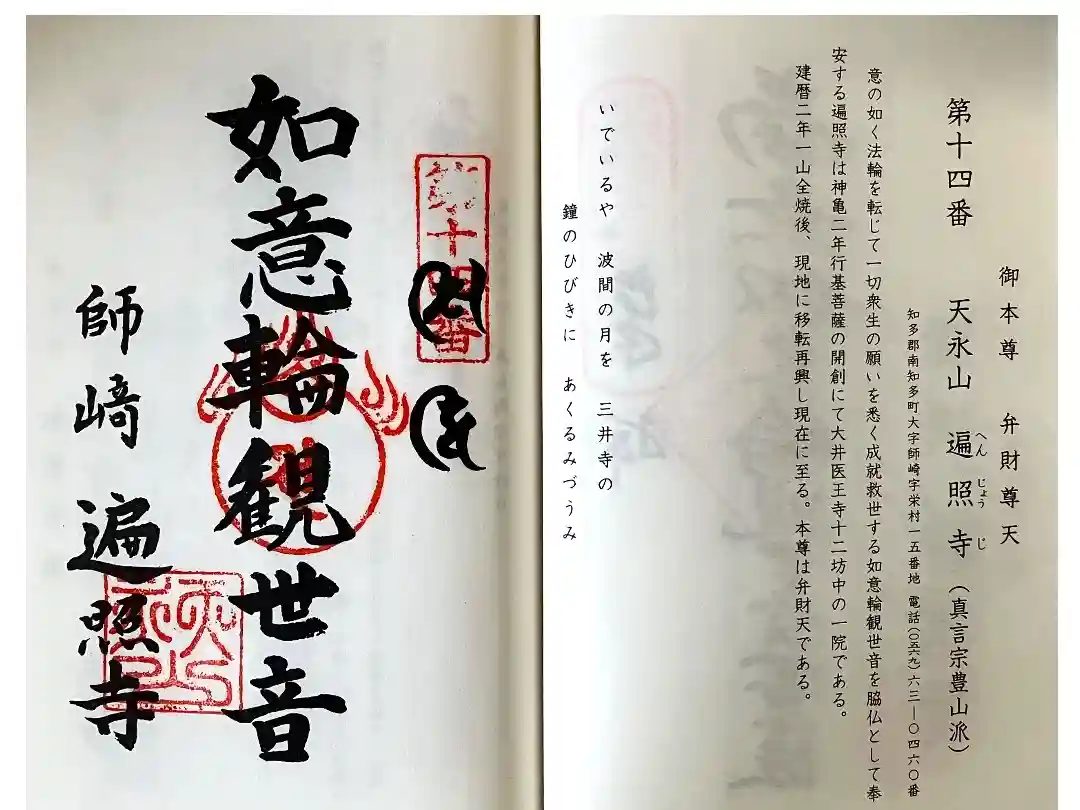 御本尊 弁財尊天
第十四番 天永山 遍照寺(真言宗豊山派)
へん じょう じ
知多郡南知多町大字師崎字栄村一五番地 電話(〇五六九)六三―〇四六〇番
意の如く法輪を転じて一切衆生の願いを悉く成就救世する如意輪観世音を脇仏として奉
安する遍照寺は神亀二年行基菩薩の開創にて大井医王寺十二坊中の一院である。
建暦二年一山全焼後、現地に移転再興し現在に至る。本尊は弁財天である。
いでいるや 波間の月を 三井寺の
鐘のひびきに あくるみづうみ
第十四番
如意輪観世音
師﨑 遍照寺